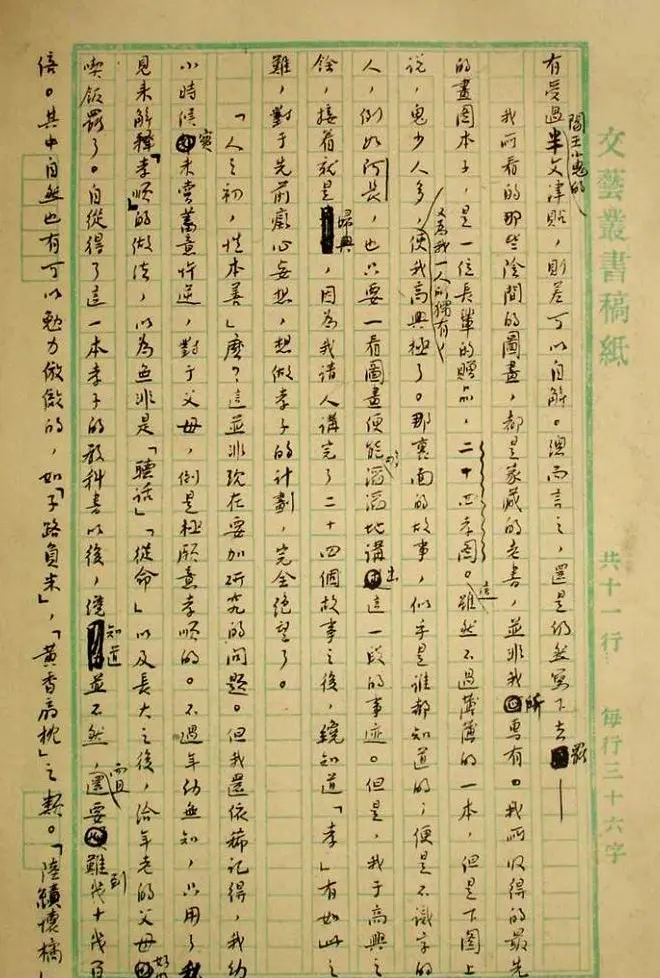 文藝叢書稿紙 共十一行 每行三十六字
有受過閻王小鬼的半文津貼,則差可以自解。總而言之,還是仍然寫下去罷——
我所看的那些陰間的圖畫,都是家藏的老書,並非我所專有。我所收得的最先
的畫图本子,是一位長輩的贈品,二十四孝图。這雖然不過薄薄的一本,但是下图上
说,鬼少人多,又為我一人所獨有,使我高興極了。那裏面的故事,似乎是誰都知道的;便是不識字的
人,例如阿長,也只要一看圖畫便能够滔滔地講出這一段的事迹。但是,我于高興之
餘,接着就是掃興,因為我請人講完了二十四個故事之後,纔知道「孝」有如此之
難,對于先前癡心妄想,想做孝子的計劃,完全绝望了。
「人之初,性本善」麼?這並非现在要加研究的问题。但我還依稀记得,我幼
小時候實未嘗蓄意忤逆,對于父母,倒是極願意孝順的。不過年幼無知,只用了私
見来解释「孝順」的做法,以為無非是「聽话」「從命」以及長大之後,给年老的父母好好
喫飯罷了。自從得了這一本孝子的教科書以後,纔知道並不然,而且還要難到幾十幾百
倍。其中自然也有可以勉力倣傚的,如「子路負米」,「黄香扇枕」之類。「陸績懷橘」